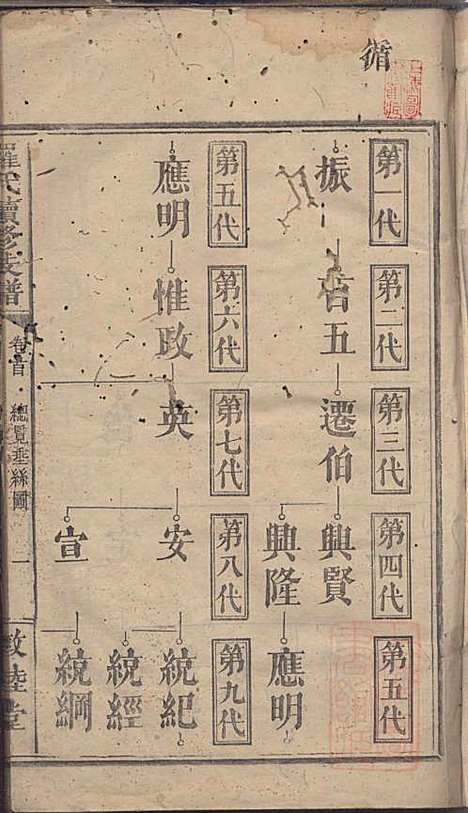 循
第一代
第二代
第三代
第四代
第五代
振
百五
遷伯
興賢
興隆
應明
第五代
第六代
第七代
第八代
第九代
應明
惟政
英
安
統紀
統經
宣
統綱
羅氏續修支譜
卷首
總覽垂絲圖
一
敦睦堂